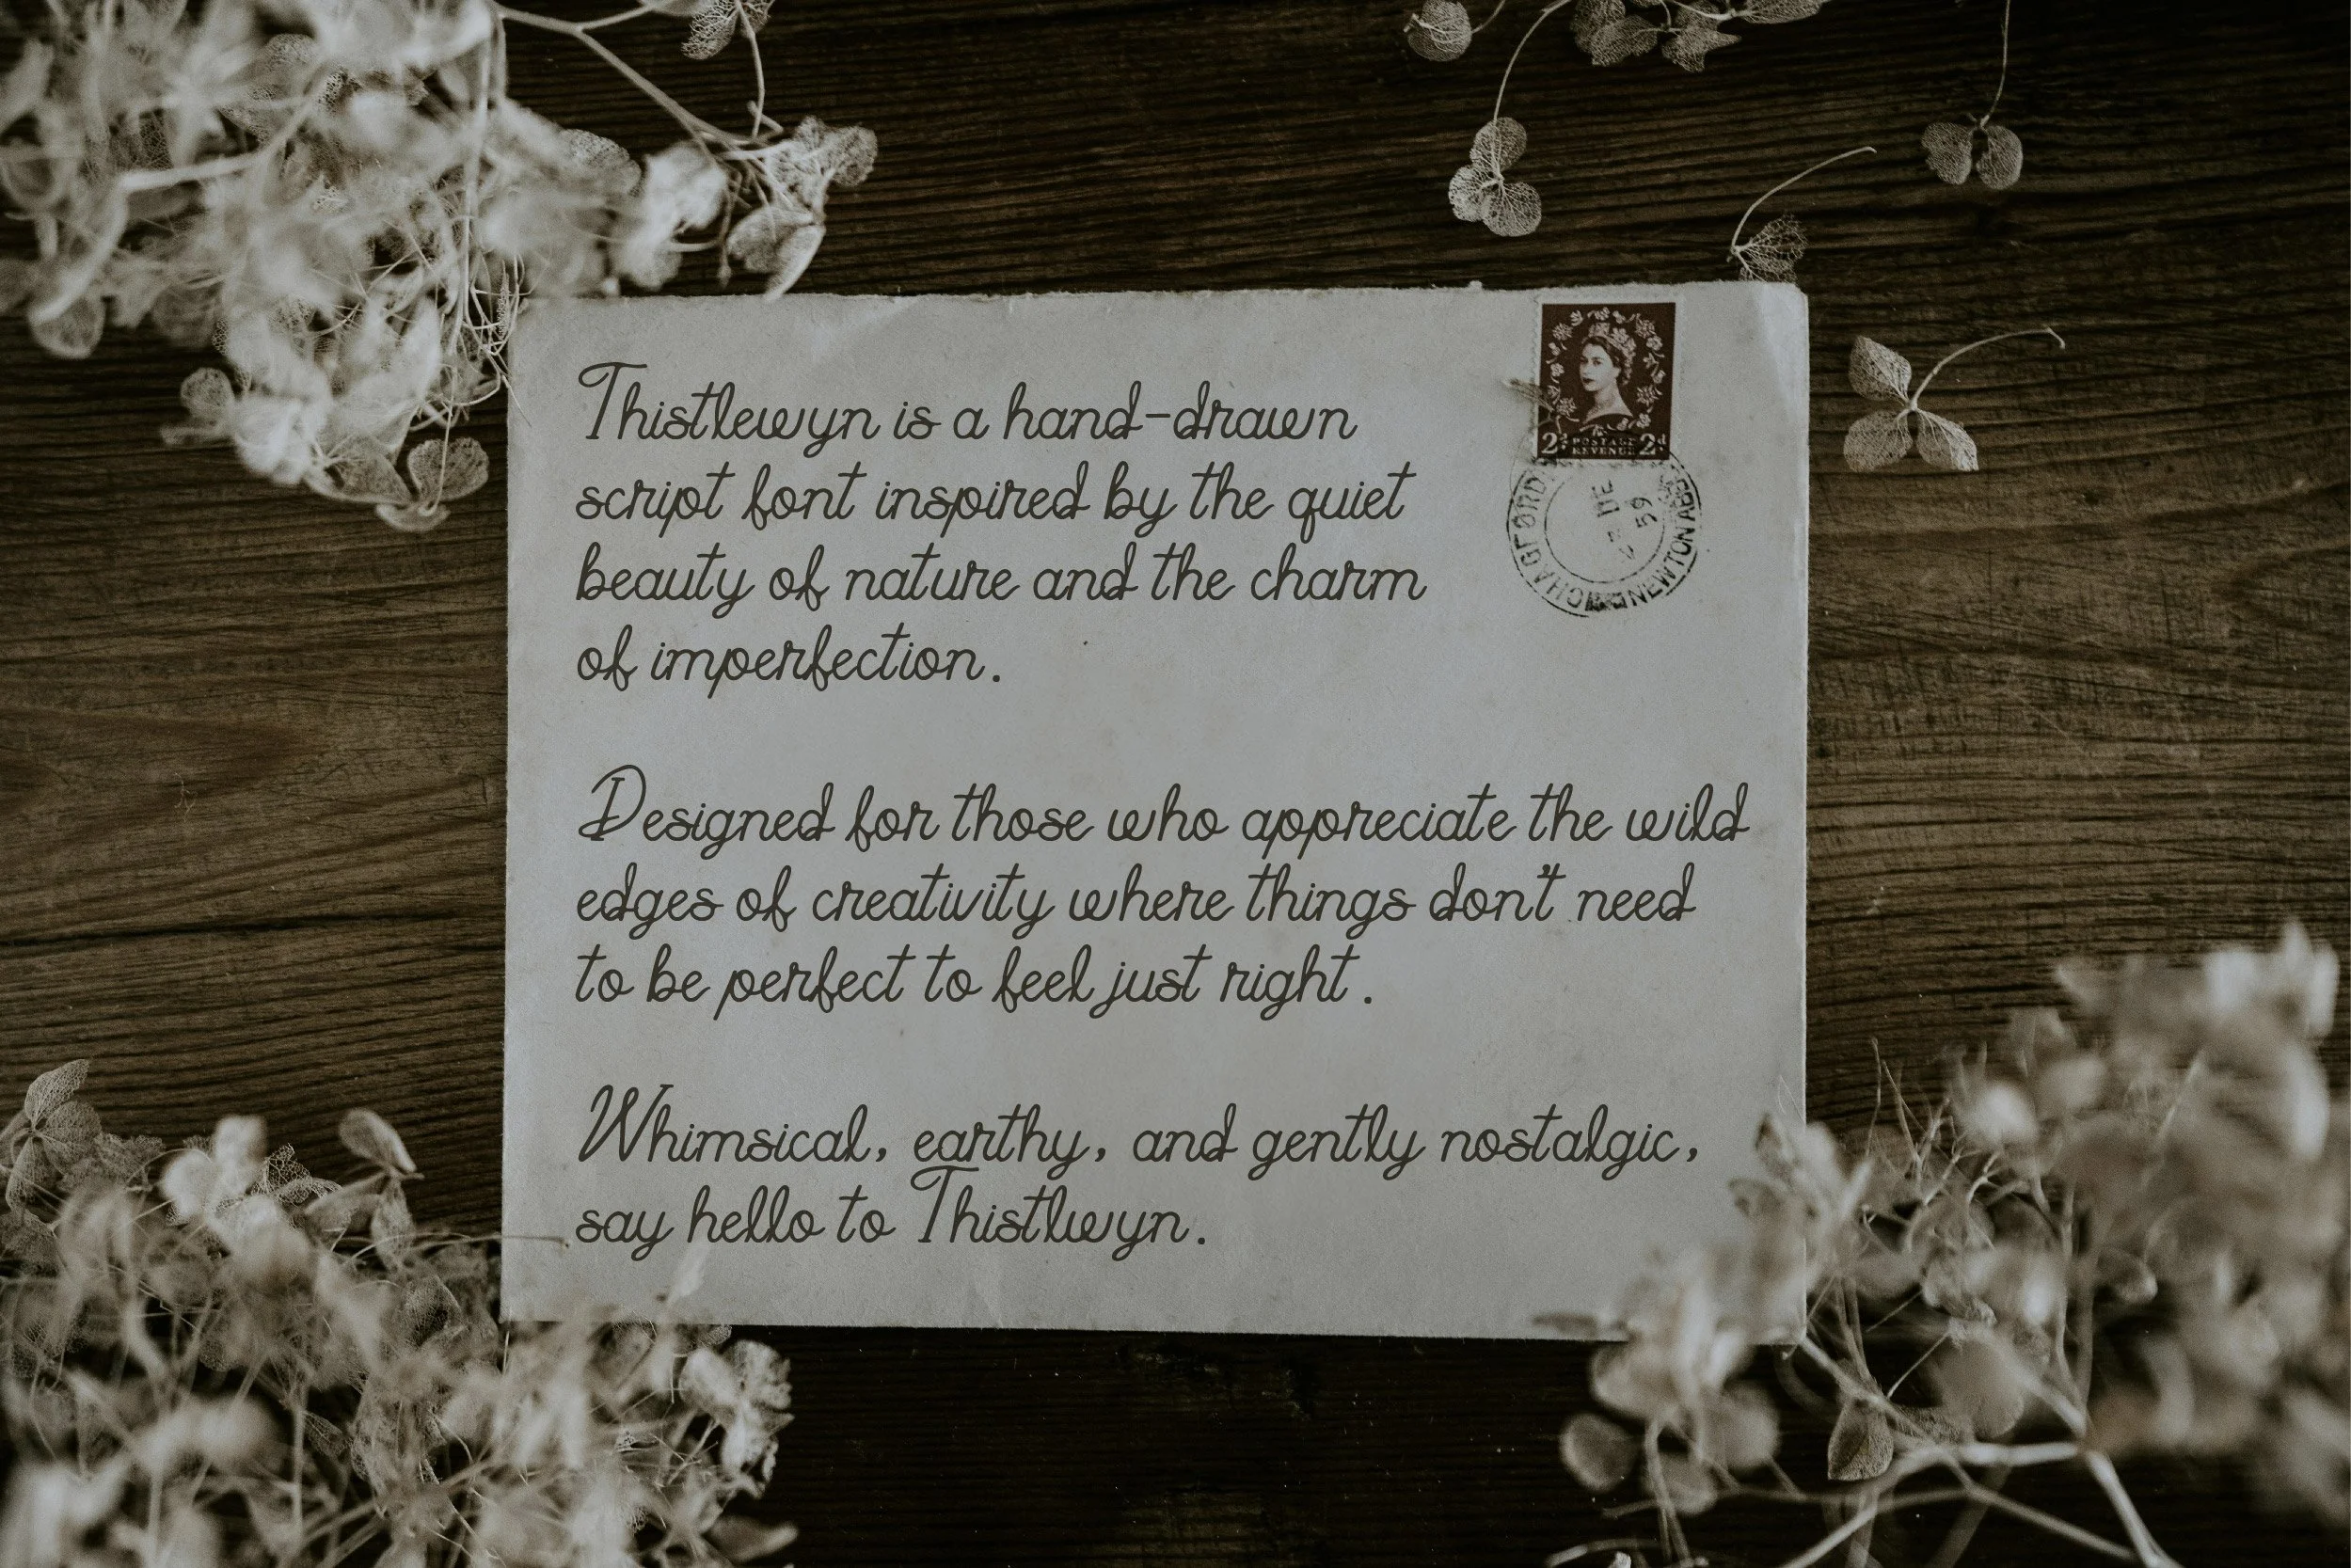 Thistlewyn is a hand-drawn
script font inspired by the quiet
beauty of nature and the charm
of imperfection.
Designed for those who appreciate the wild
edges of creativity where things don't need
to be perfect to feel just right.
Whimsical, earthy, and gently nostalgic,
say hello to Thistlwyn.
2d POSTAGE 2d
REVENUE
CHAGFORD
DE
59
NEWTON ABB